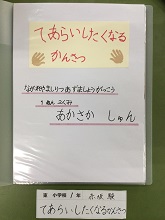 てあらいしたくなる
かんさつ
ながれやましりつ あずましょうがっこう
1ねん 2くみ
あかさか しゅん
東 小学校 1年 赤坂 駿
てあらいしたくなるかんさつ